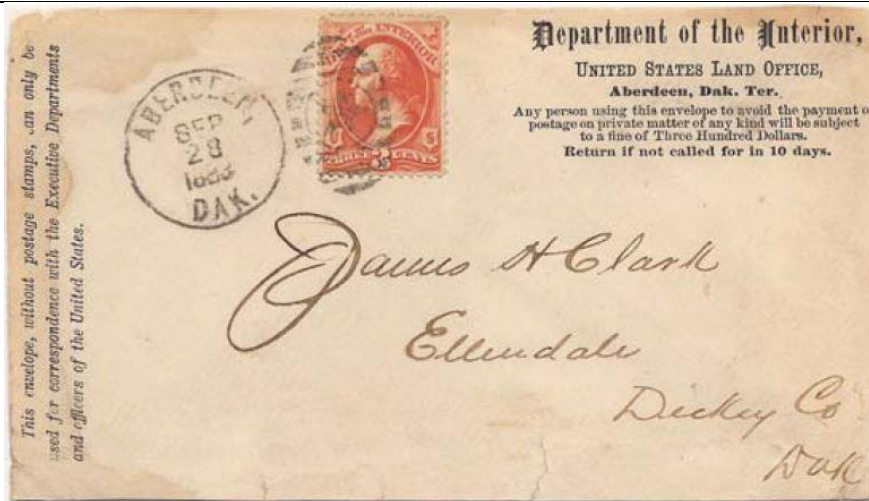 This envelope, without postage stamps, can only be
used for correspondence with the Executive Departments
and officers of the United States.
ABERDEEN,
SEP
28
1883
DAK.
INTERIOR
U S
THREE 3 CENTS
Department of the Interior,
UNITED STATES LAND OFFICE,
Aberdeen, Dak. Ter.
Any person using this envelope to avoid the payment o
postage on private matter of any kind will be subject
to a fine of Three Hundred Dollars.
Return if not called for in 10 days.
James H Clark
Ellendale
Dickey Co
Dak